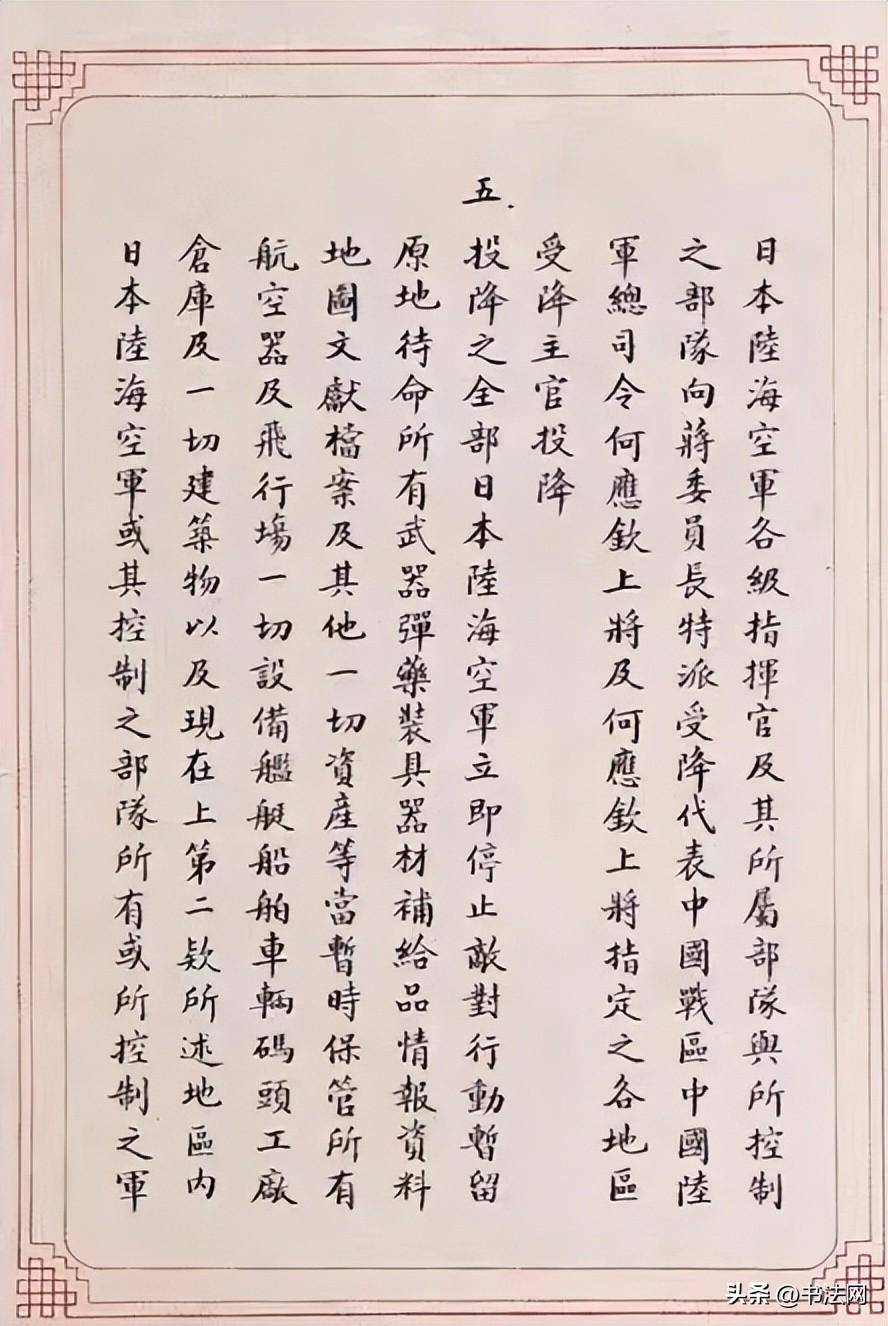 日本陸海空軍各級指揮官及其所屬部隊與所控制
之部隊向蔣委員長特派受降代表中國戰區中國陸
軍總司令何應欽上將及何應欽上將指定之各地區
受降主官投降
五.
投降之全部日本陸海空軍立即停止敵對行動暫留
原地待命所有武器彈藥裝具器材補給品情報資料
地圖文獻檔案及其他一切資産等當暫時保管所有
航空器及飛行場一切設備艦艇船舶車輛碼頭工廠
倉庫及一切建築物以及現在上第二欵所述地區内
日本陸海空軍或其控制之部隊所有或所控制之軍
头条 @书法网